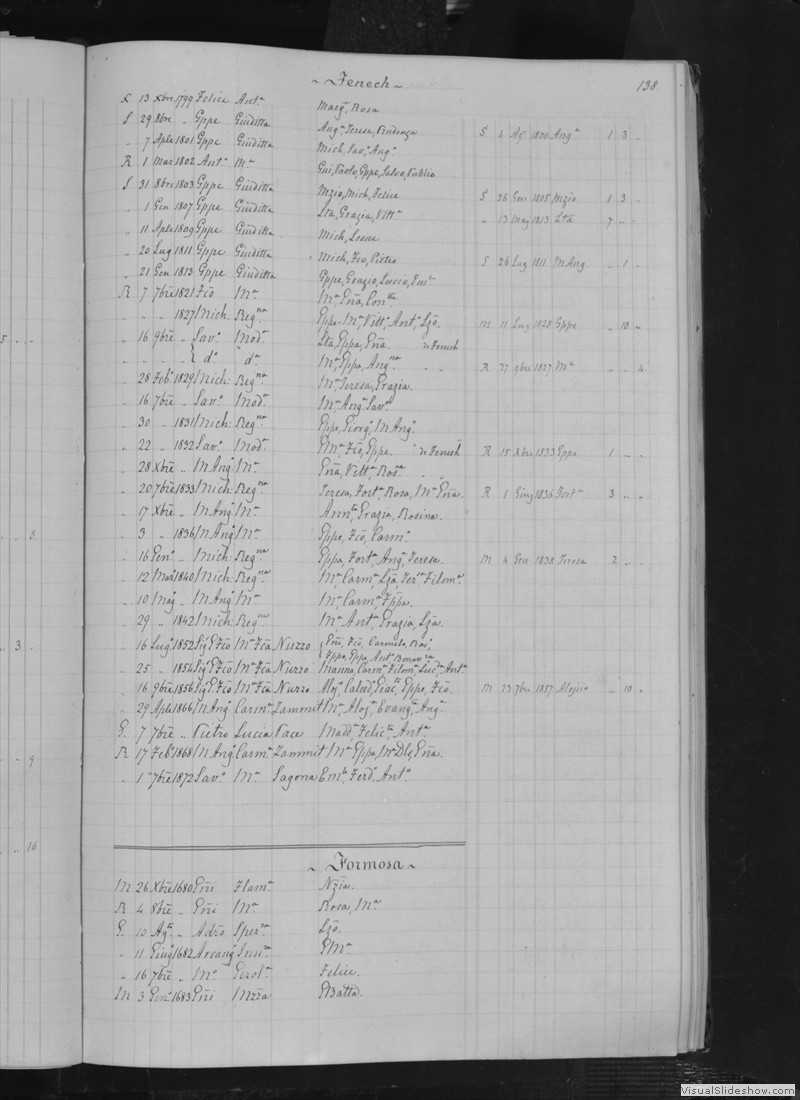 Fenech
138
S 13 Xbre 1799 Felice Antª Margª, Rosa
S 29 8bre " Gppe Giuditta Angª, Teresa, Prudenza S 2 Ag 1800 Angª 1 3 "
" 7 Aple 1801 Gppe Giuditta Mich, Savº, Angº
R 1 Mar 1802 Antº Mª Gni, Paolo, Gppe, Salvo, Publio
S 31 8bre 1803 Gppe Giuditta Mzio, Mich, Felice S 26 Gen 1805 Mzio 1 3 "
" 1 Gen 1807 Gppe Giuditta Lta, Grazia, Vittª " 13 Mag 1813 Lta 7 " "
" 11 Aple 1809 Gppe Giuditta Mich, Leone
" 20 Lug 1811 Gppe Giuditta Mich, Fco, Pietro S 26 Lug 1811 M Ang " 1 "
" 21 Gen 1813 Gppe Giuditta Gppe, Grazio, Lucio, Emle
R 7 7bre 1821 Fco Mª Mª Gña, Contta
" " " 1827 Mich Regna Gppe Mª Vittª, Antª, Lza M 11 Lug 1828 Gppe " 10 "
" 16 9bre " Savº Modª Lta, Gppa, Gña. de Fenech
" " " " dº dª Mª, Gppa, Angna " " R 27 9bre 1827 Mª " " 4
" 28 Febº 1829 Mich Regna Mª Teresa, Grazia.
" 16 7bre " Savº Modª Mª Angª Savª
" 30 " 1831 Mich Regna Gppe, Giorgº, M Angº
" 22 " 1832 Savº Modª GMª Fco, Gppe. de Fenech R 15 Xbre 1833 Gppe 1 " "
" 28 Xbre " M Angº Mª Gña, Vittª, Rosna
" 20 7bre 1833 Mich Regna Teresa, Fortª, Rosa, Mª Gña. R 1 Giug 1836 Fortª 3 " "
" 17 Xbre " M Angº Mª Annta, Grazia, Rosina.
" 3 " 1836 M Angº Mª Gppe, Fco, Carmº
" 16 Genº " Mich Regna Gppa, Fortª, Angª, Teresa. M 4 Gen 1838 Teresa 2 " "
" 12 Mar 1840 Mich Regna Mª Carmª Lza, Terª Filomª
" 10 Mag " M Angº Mª Mª, Carmª, Fppa.
" 29 " 1842 Mich Regna Mª Antª, Grazia, Lza.
" 16 Lugº 1852 Sigr G Fco Mª Fca Nuzzo Gñi, Fco, Carmelo, Rosª,
Fppo, Gppe, Antº
25 " 1854 Sigr G Fco Mª Fca Nuzzo Carmª, Filomª, Antª.
" 16 9bre 1856 Sigr G Fco Mª Fca Nuzzo Alojº, Giactº, Gppe, Fco. M 23 7bre 1857 Alojsio " 10 "
" 29 Aple 1866 M Angº Carmª Zammit Mª, Alojª, Evangta, Angª
G. 7 7bre " Pietro Lucia Pace Madª, Felicta, Antª
R 17 Febº 1868 M Angº Carmª Zammit Mª Gppa, Gña.
" 1 7bre 1872 Savº Mª Sagona Emle, Ferdº, Antº
Formosa
M 26 Xbre 1680 Gñi Flamª Nzia.
R 4 8bre " Gñi Mª Rosa, Mª
G. 10 Agto " Adro Sperza Lzo.
" 11 Giugº 1682 Arcangº GMª
" 16 7bre " Mº Gerolª Felice.
M 3 Genº 1683 Gñi Mzza GBatta.
5
8
3
9
16
VisualSlideshow.com